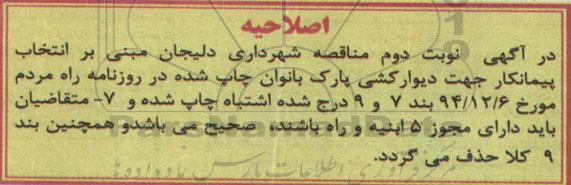 اصلاحیه
در آگهی نوبت دوم مناقصه شهرداری دلیجان مبنی بر انتخاب
پیمانکار جهت دیوارکشی پارک بانوان چاپ شده در روزنامه راه مردم
مورخ ۹۴/۱۲/۶ بند ۷ و ۹ درج شده اشتباه چاپ شده و ۷- متقاضیان
باید دارای مجوز ۵ ابنیه و راه باشند، صحیح می باشدو همچنین بند
۹ کلا حذف می گردد.